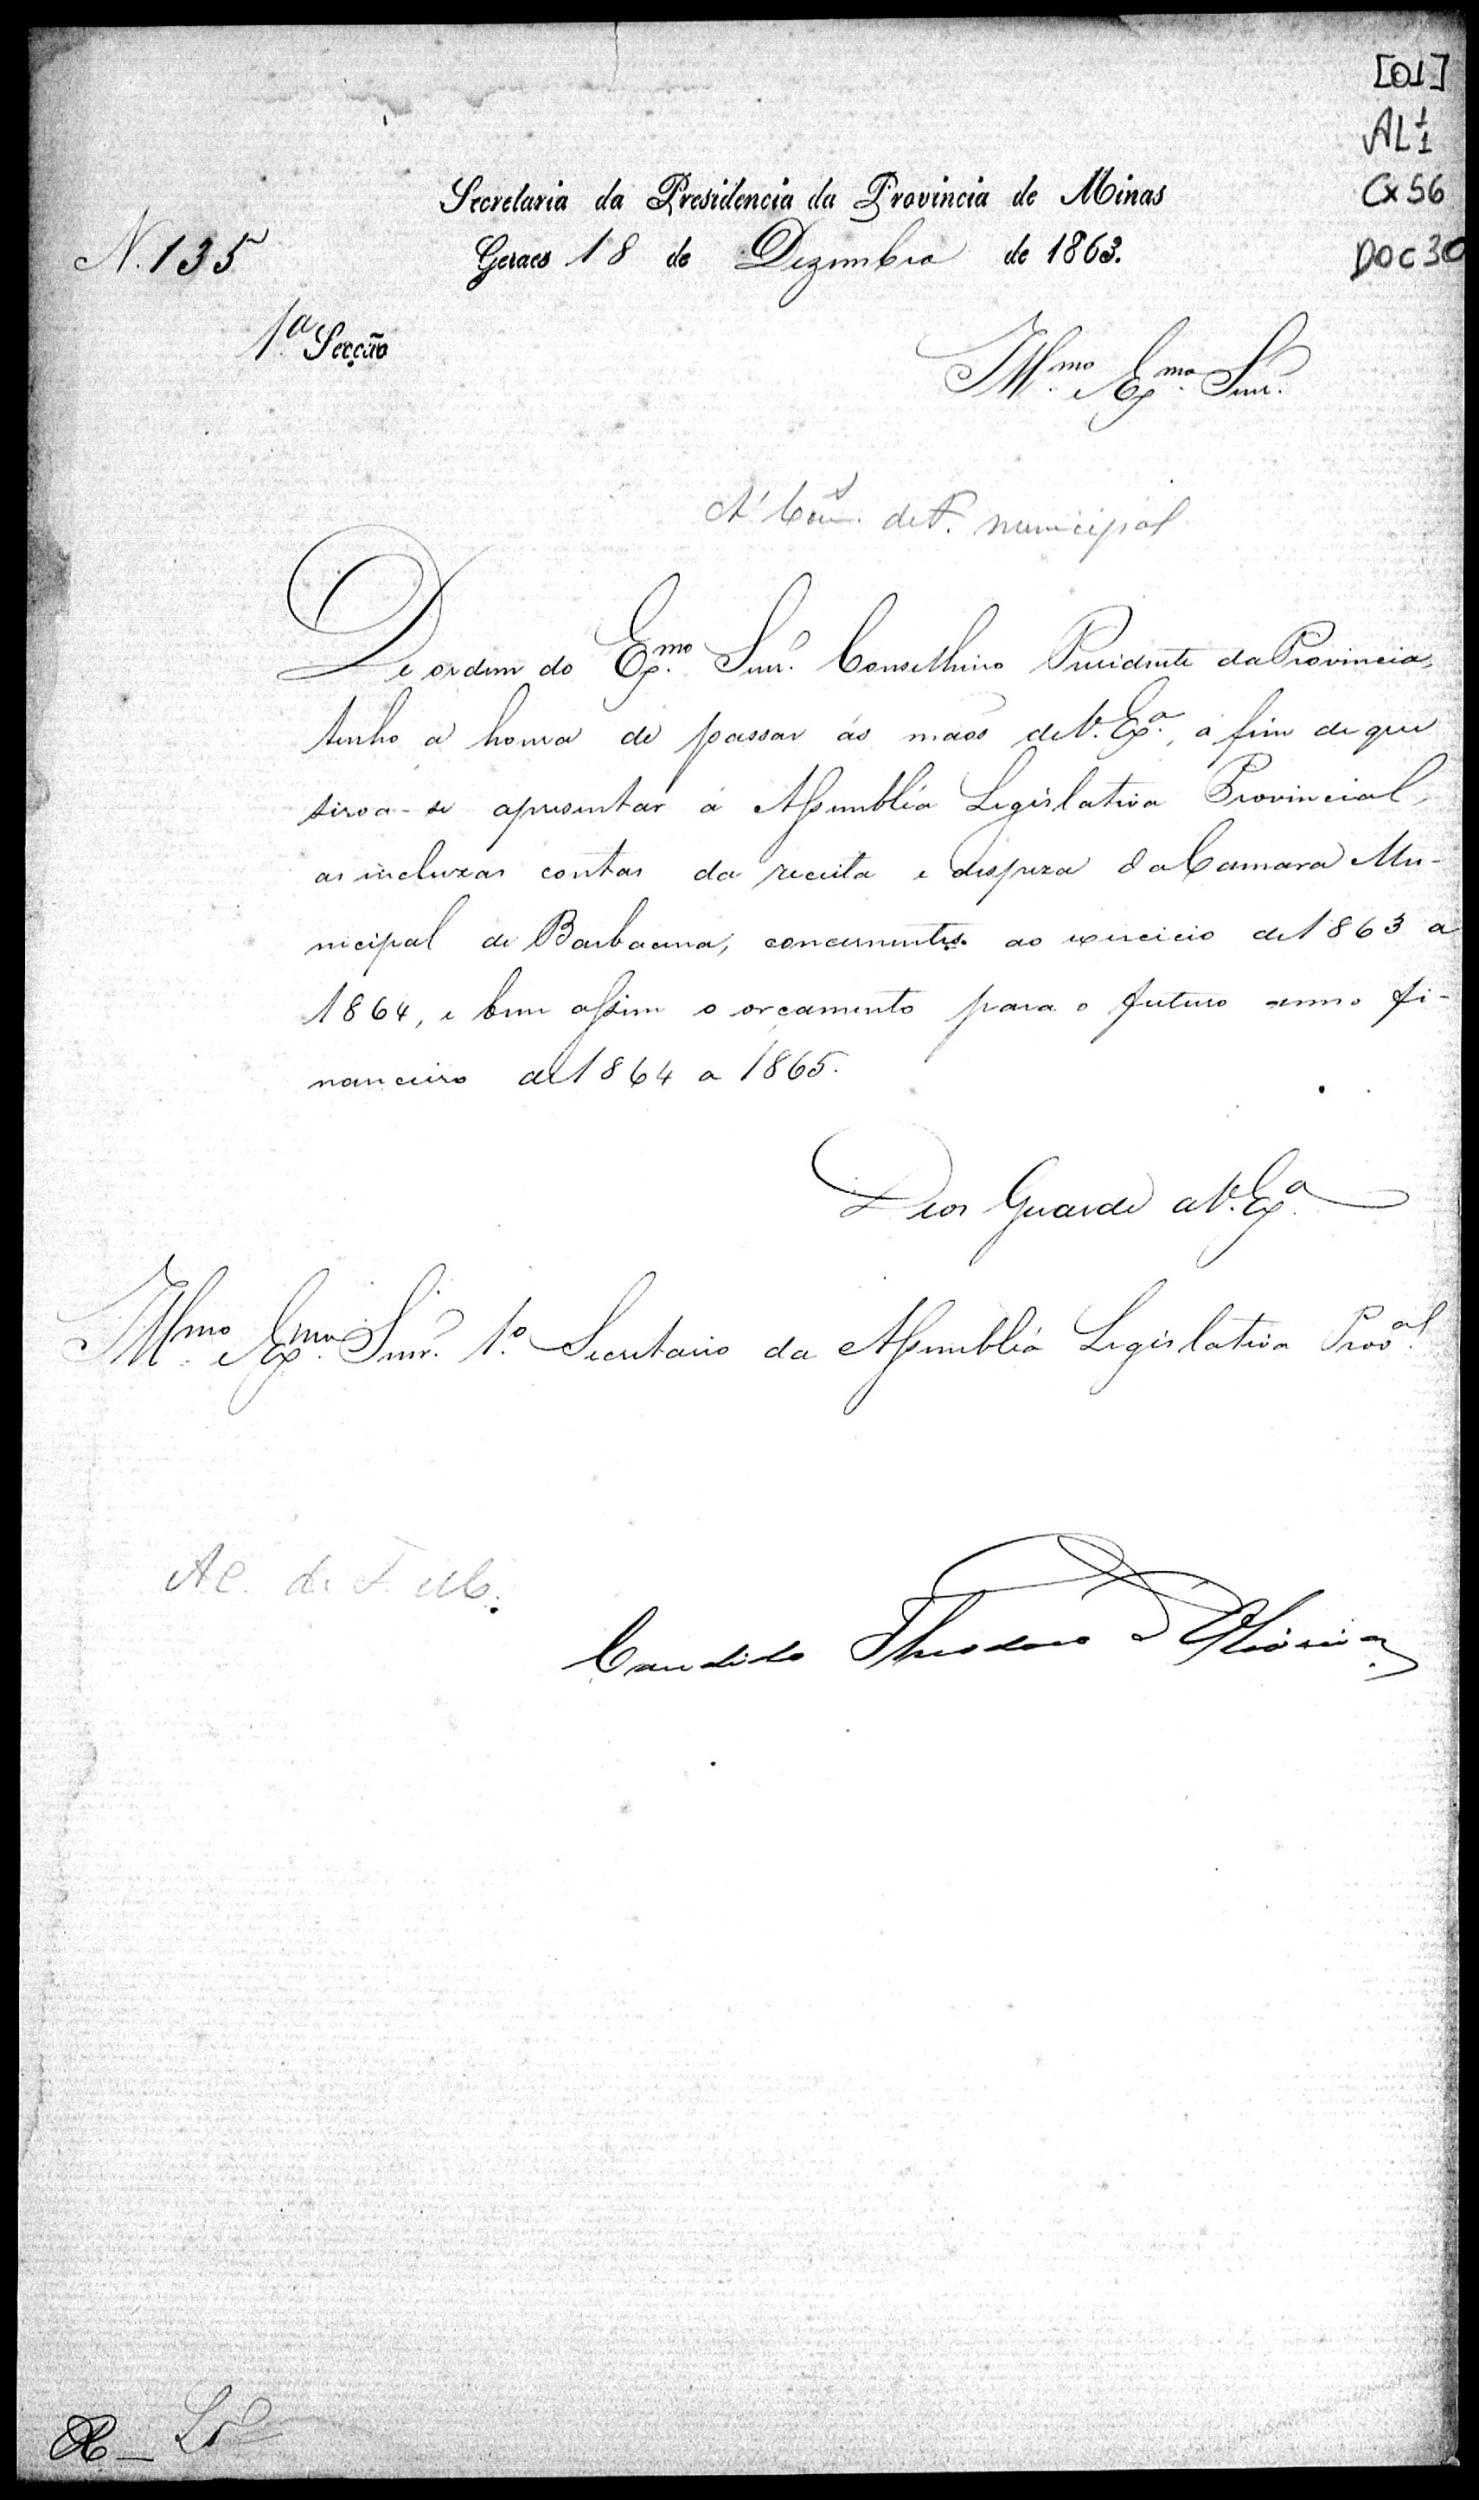 [01]
AL 1/1
Cx 56
DOC 30
Secretaria da Presidencia da Provincia de Minas
N. 135
Geraes 18 de Dezembro de 1863.
1.ª Secção
Ill.mo e Ex.mo Snr.
A' Com. de F. municipal
De ordem do Ex.mo Snr. Conselheiro Presidente da Provincia,
tenho a honra de passar ás mãos de V. Ex.ª, a fim de que
sirva-se apresentar á Assembléa Legislativa Provincial,
as incluzas contas da receita e despeza da Camara Mu-
nicipal de Barbacena, concernentes ao exercicio de 1863 a
1864, e bem assim o orçamento para o futuro anno fi-
nanceiro de 1864 a 1865.
Deos Guarde a V. Ex.ª
Ill.mo e Ex.mo Snr. 1.º Secretario da Assembléa Legislativa Prov.al
A C. de F. M.
Candido Theodoro d'Oliveira